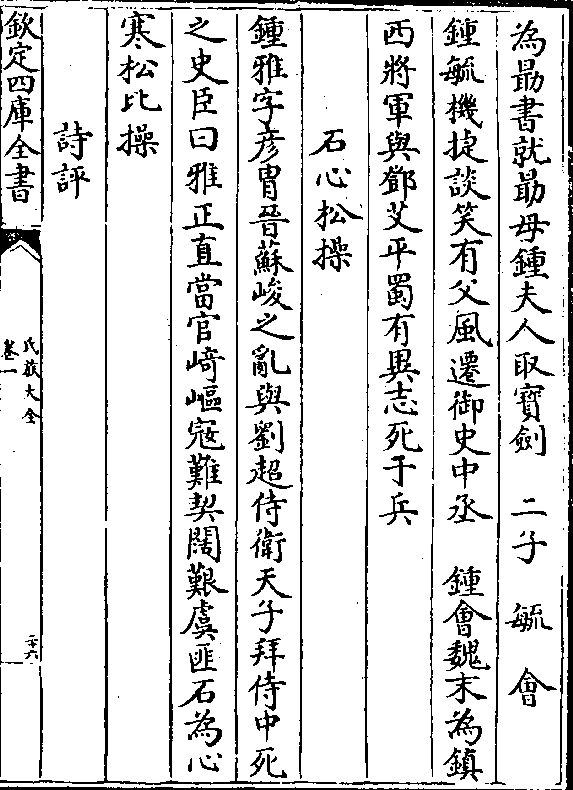 為勗書就勗母鍾夫人取寳劍　二子　毓　會
鍾毓機捷談笑有父風遷御史中丞　鍾會魏末為鎮
西將軍與鄧艾平蜀有異志死于兵
石心松操
鍾雅字彦胄晉蘇峻之亂與劉超侍衛天子拜侍中死
之史臣曰雅正直當官崎嶇寇難契闊艱虞匪石為心
寒松比操
詩評
欽定四庫全書
氏族大全
卷一
二十六